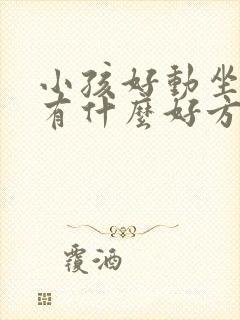 小孩好動坐
有什麼好方
覆酒